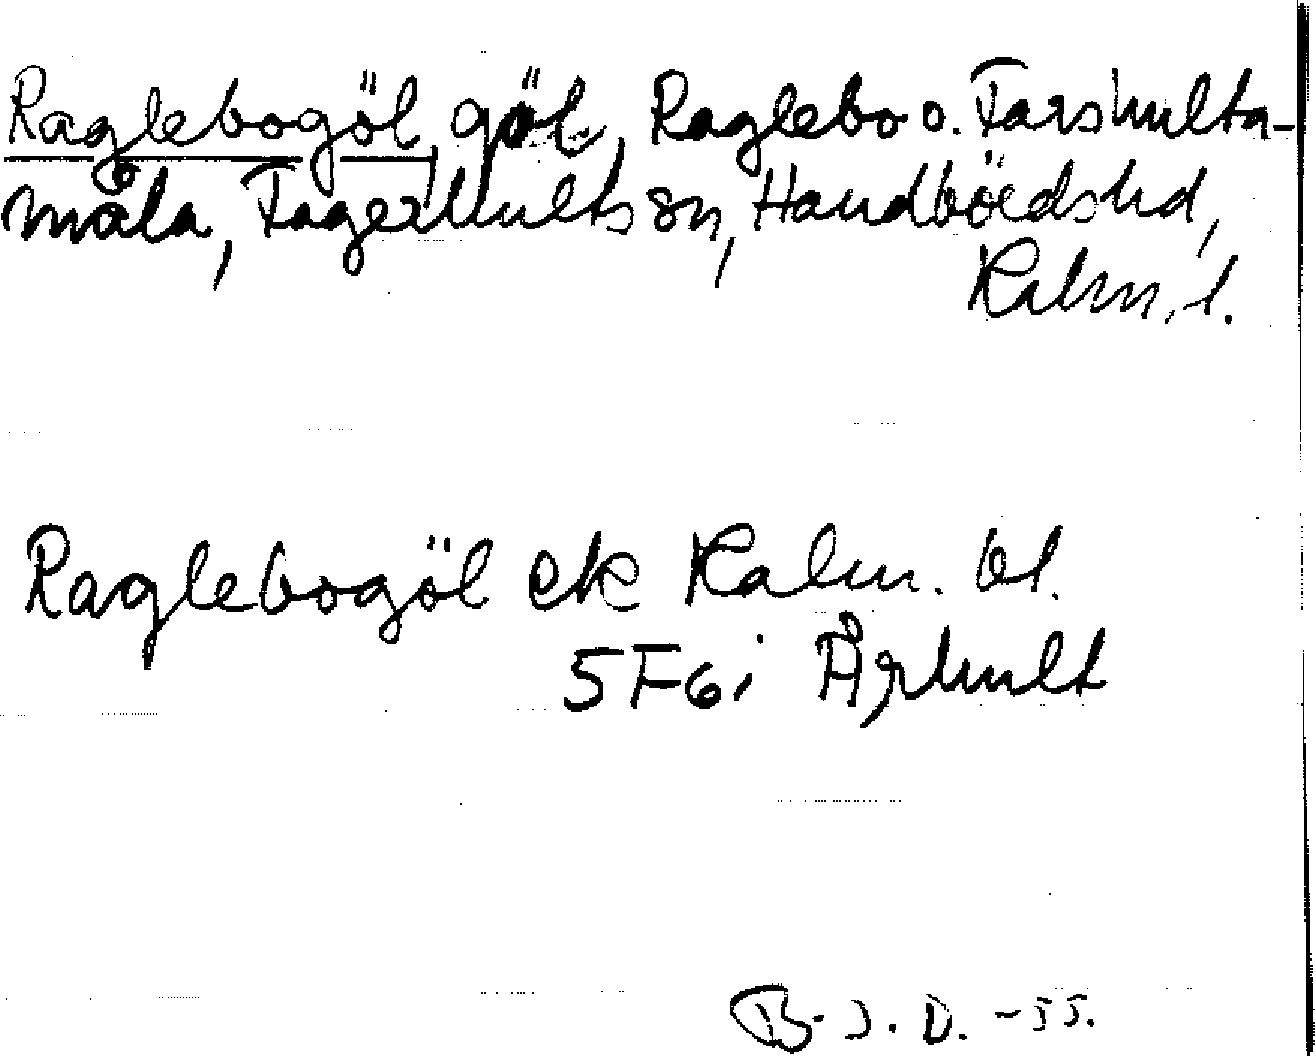 Raglebogöl, göl, Raglebo o. Farshulta-
måla, Fagerhults sn, Handbördshd,
Kalm. l.
Raglebogöl ek Kalm. bl.
5F6i Århult
B. J. D. -55.